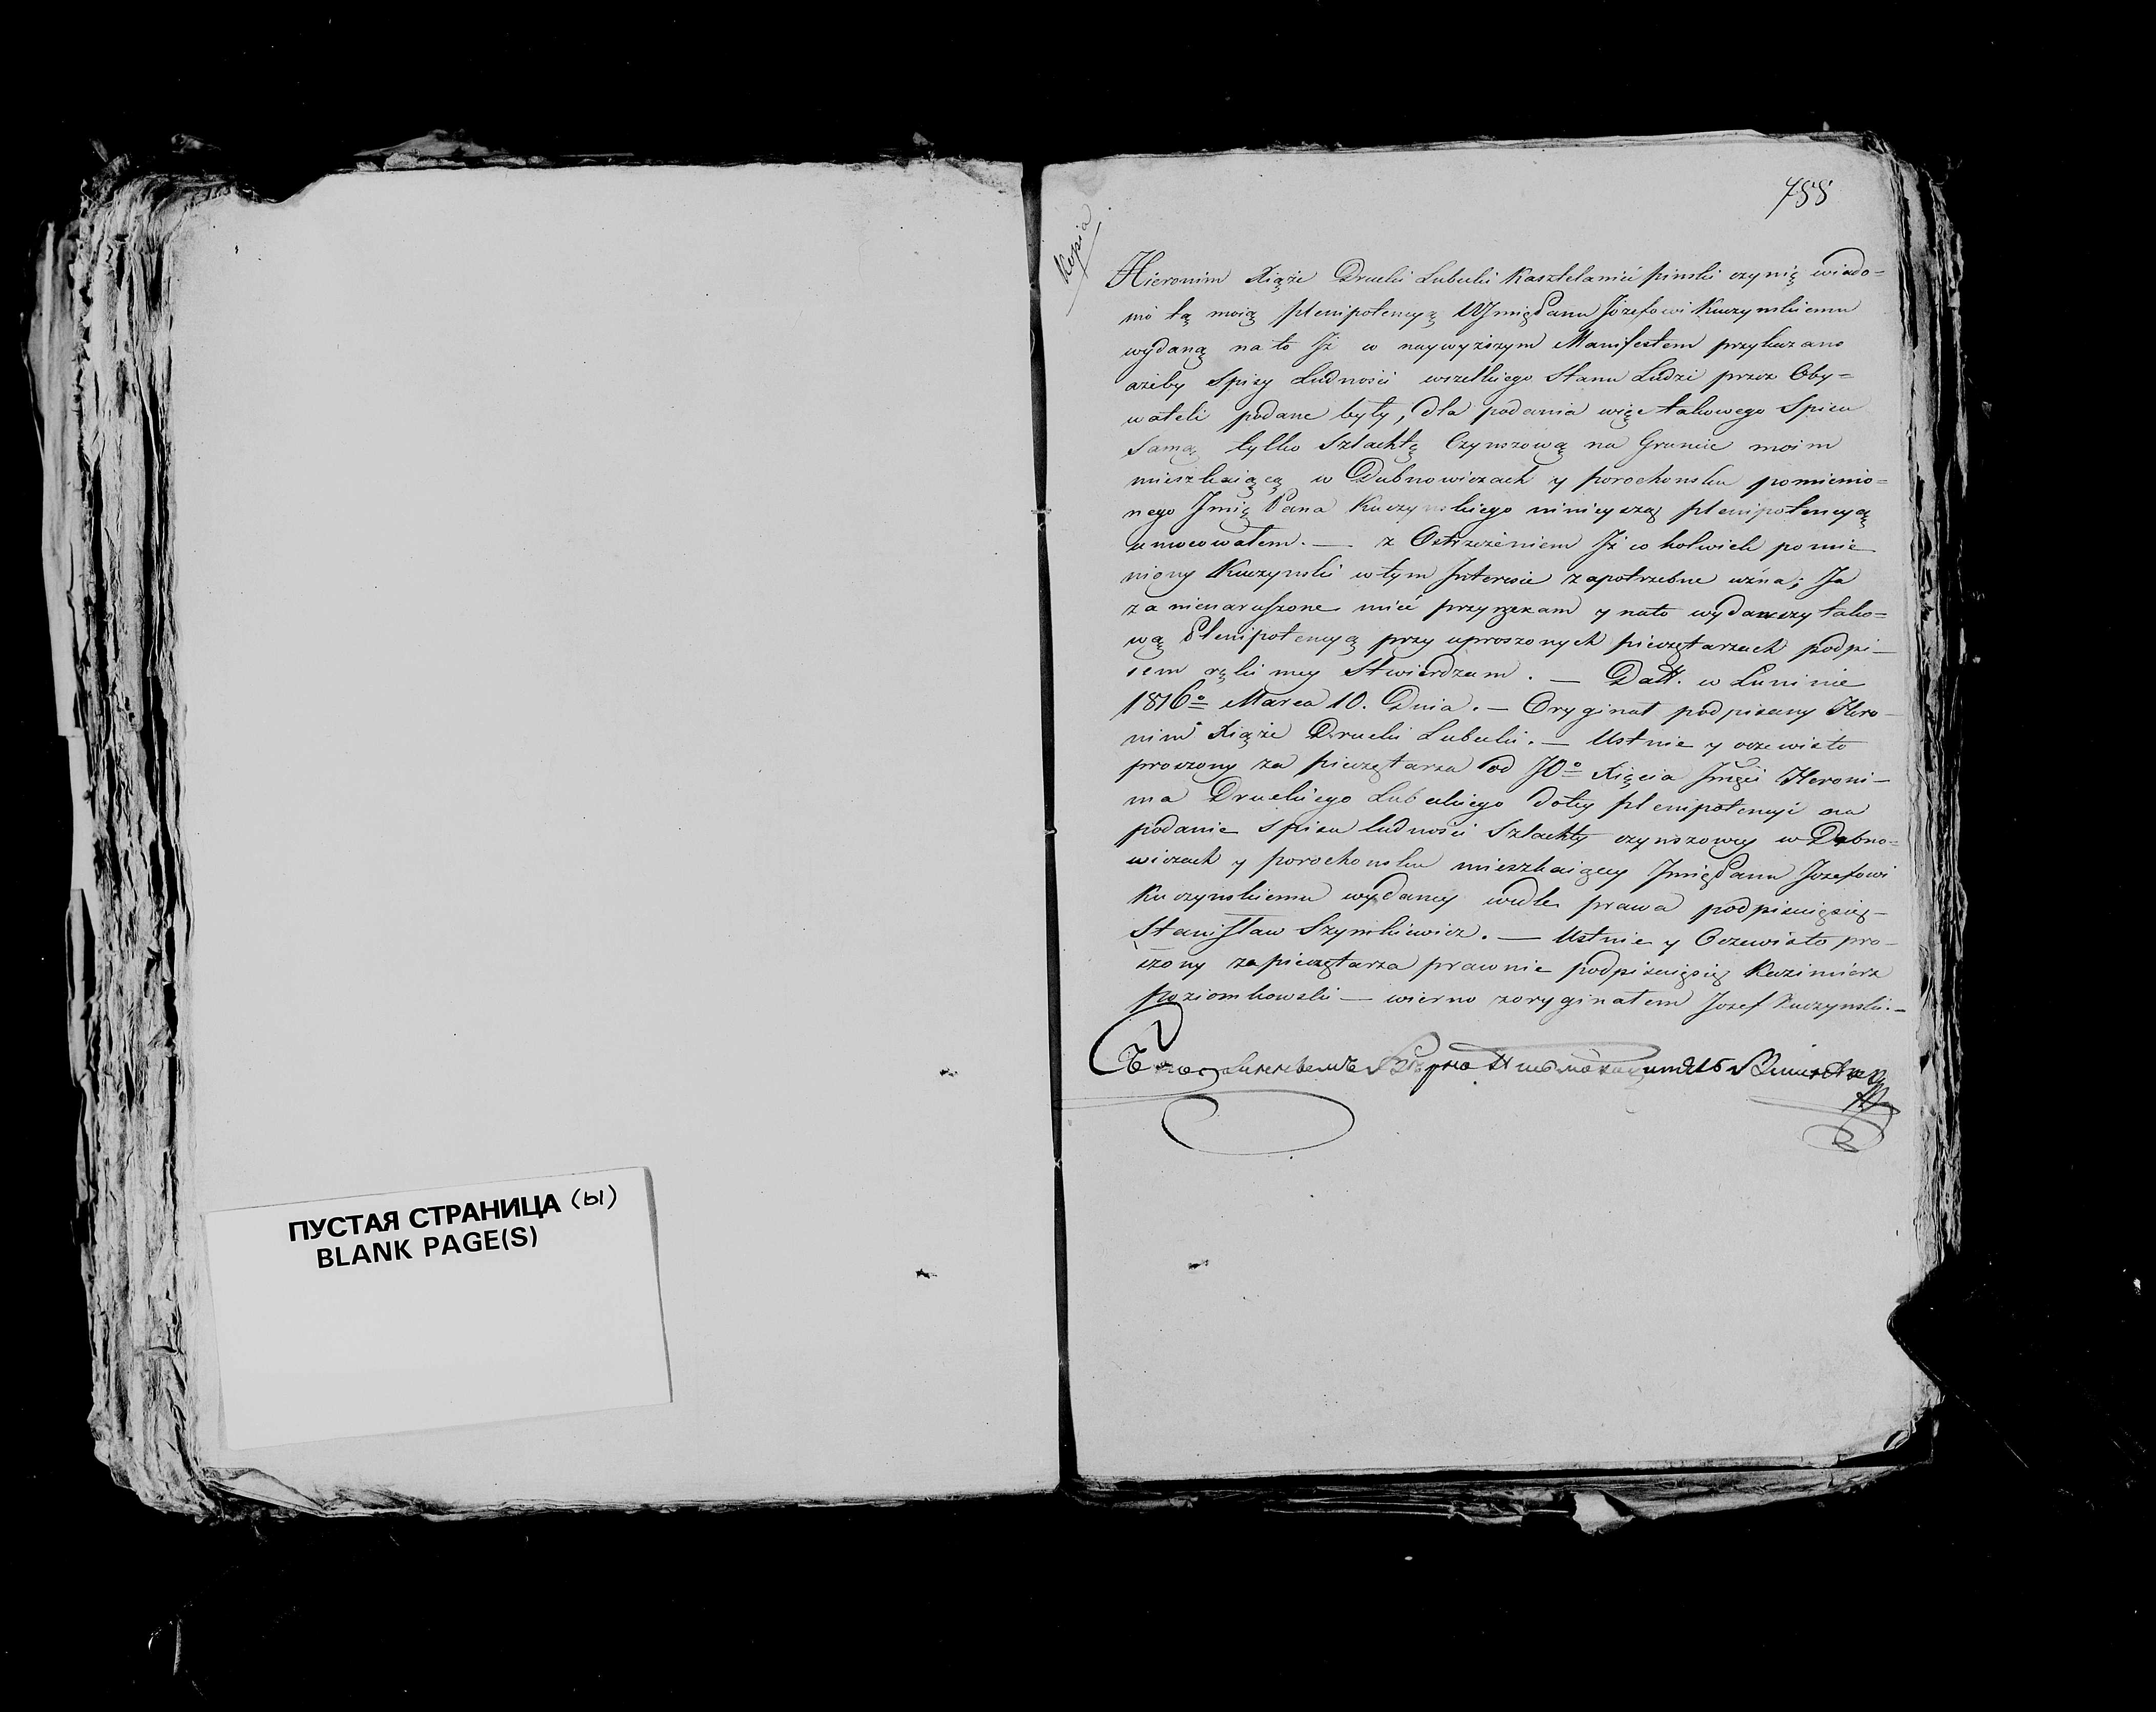 ПУСТАЯ СТРАНИЦА (ы)
BLANK PAGE(S)
755
Kopia
Hieronim Xiąże Drucki Lubecki Kasztelanić pinski czynię wiado=
mo tą moią plenipotencyą WJmięPanu Jozefowi Kuczynskiemu
wydaną na to Jż w naywyższym Manifestem przykazano
ażeby Spisy Ludności wszelkiego Stanu Ludzi przez Oby=
wateli podane były, dla podania więc takowego Spisu
samą tylko Szlachtę Czynszową na Gruncie moim
mieszkaiącą w Dubnowiczach y porochonsku pomienio=
nego Jmię Pana Kuczynskiego ninieyszą plenipotencyą
umocowałem. — z Ostrzeżeniem Jż co kolwiek pomie
niony Kuczynski w tym Jnteresie zapotrzebne uzna; Ja
za nienaruszone mieć przyrzekam y nato wydawszy tako=
wą Plenipotencyą przy uproszonych pieczętarzach podpi—
sem ręki mey Stwierdzam. — Datt. w Luninie
1816º Marca 10. Dnia. — Oryginał podpisany Hero—
nim Xiąże Drucki Lubecki. — Ustnie y oczewisto
proszony za pieczętarza od JOº Xięcia Jmści Heroni—
ma Druckiego Lubeckiego dotey plenipotencyi na
podanie spisu ludności Szlachty czynszowey w Dubno=
wiczach y porochonsku mieszkaiącey JmięPanu Jozefowi
Kuczynskiemu wydaney wedle prawa podpisuięsię—
Stanisław Szymkiewicz. — Ustnie y Oczewisto pro—
szony za pieczętarza prawnie podpisuięsię Kazimierz
Poziomkowski — wierno zoryginałem Jozef Kuczynski.—